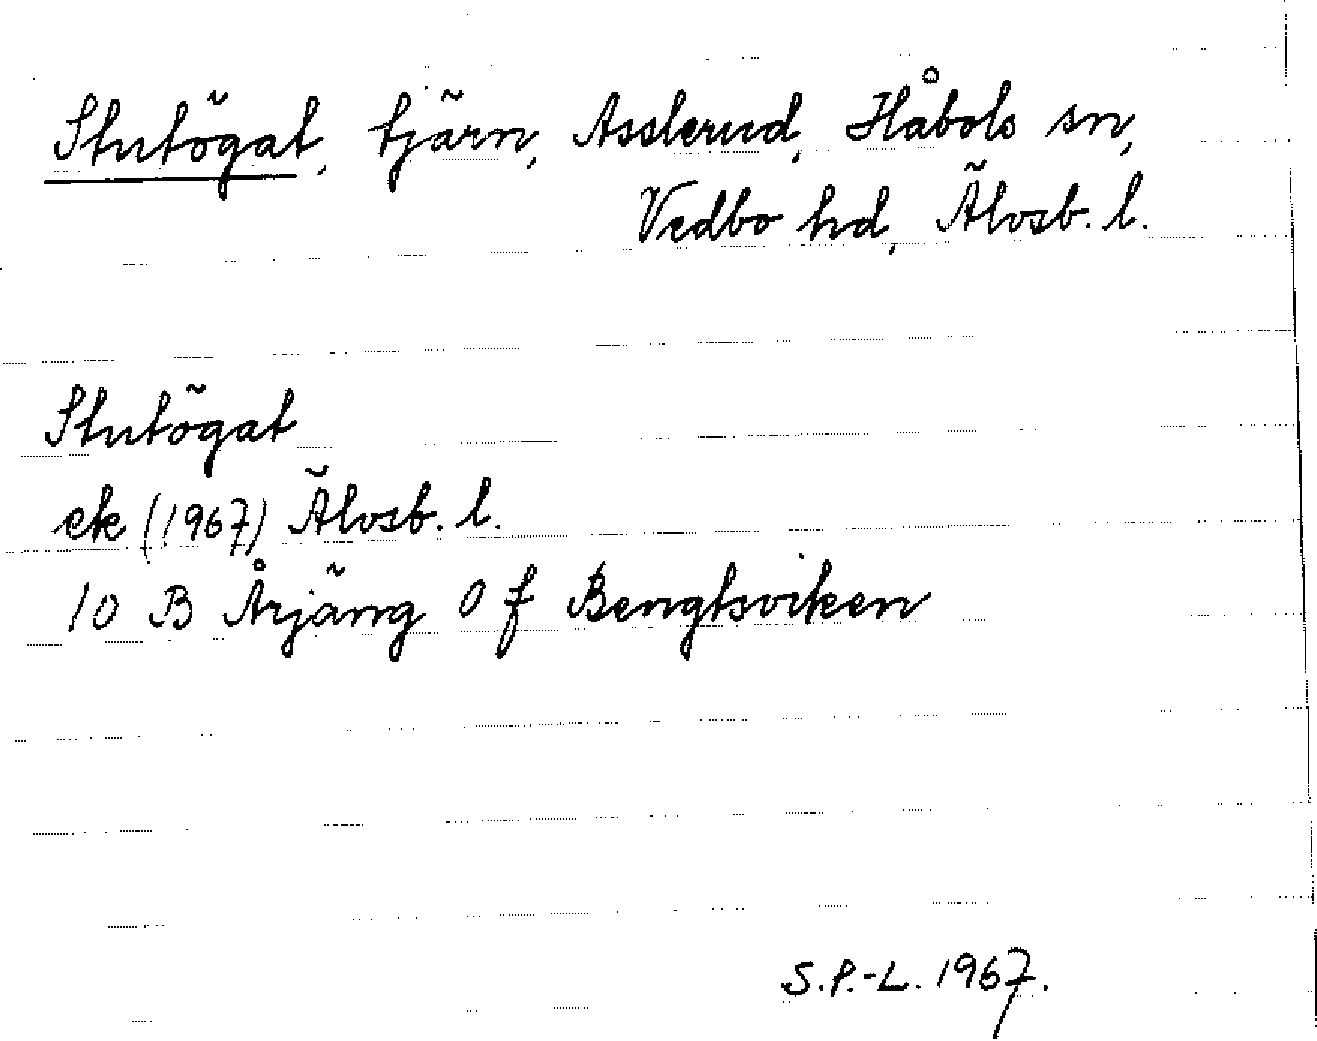 Stutögat, tjärn, Asslerud, Håbols sn,
Vedbo hd, Älvsb. l.
Stutögat
ek (1967) Älvsb. l.
10 B Årjäng 0 f Bengtsviken
S.P.-L. 1967.